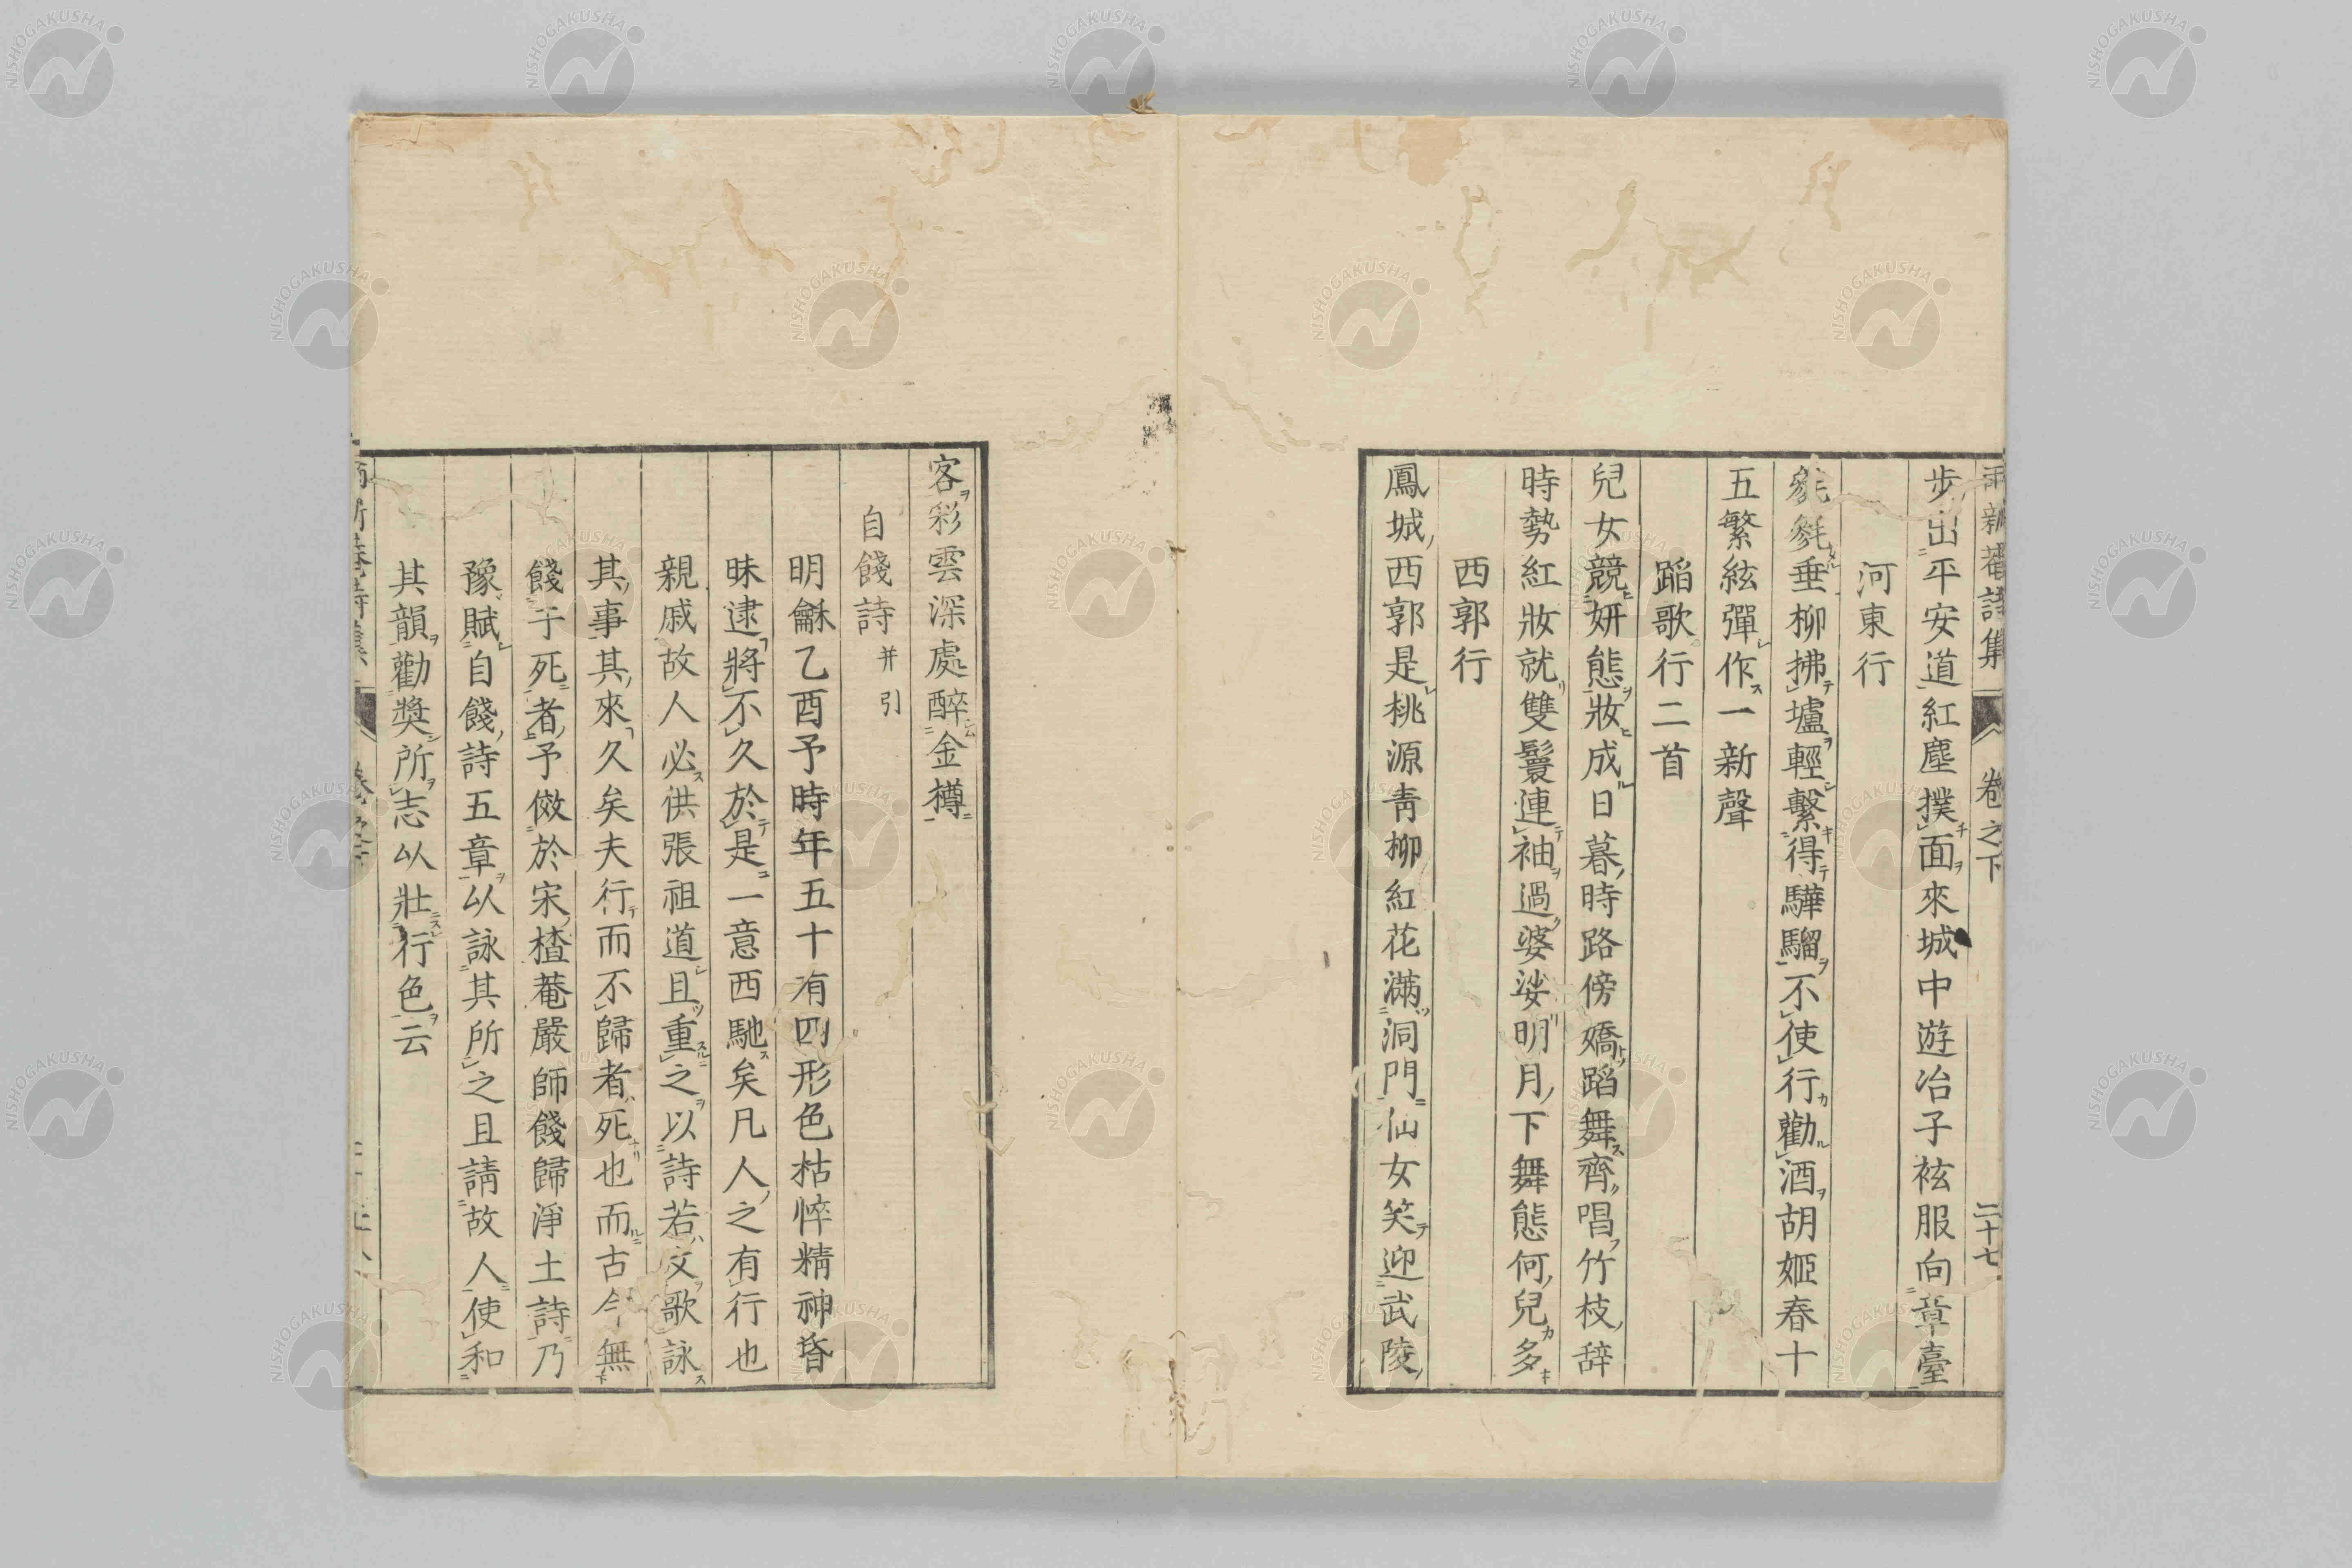 步出平安道紅塵撲面來城中遊冶子袨服向章臺
河東行
毿毿垂柳拂壚輕繫得驊騮不使行勸酒胡姬春十
五繁絃彈作一新聲
蹈歌行二首
兒女競妍態妝成日暮時路傍嬌蹈舞齊唱竹枝辞
時勢紅妝就雙鬟連袖過婆娑明月下舞態何兒多
西郭行
鳳城西郭是桃源靑柳紅花滿洞門仙女笑迎武陵
卷之下
二十七
客彩雲深處醉金樽
自餞詩并引
明龢乙酉予時年五十有四形色枯悴精神昏
昧逮將不久於是一意西馳矣凡人之有行也
親戚故人必供張祖道且重之以詩若文歌詠
其事其來久矣夫行而不歸者死也而古今無
餞于死者予傚於宋楂菴嚴師餞歸淨土詩乃
豫賦自餞詩五章以詠其所之且請故人使和
其韻勸獎所志以壯行色云
NISHOGAKUSHA